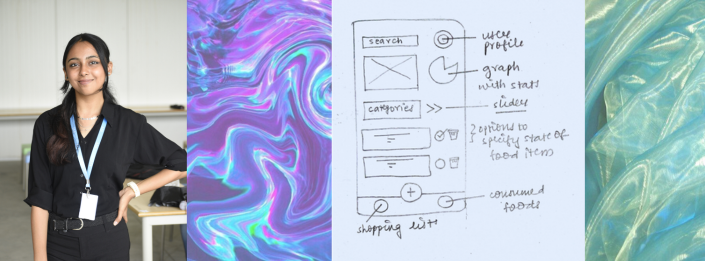 search
user
profile
graph
with stats
categories
slider
2 options to
specify state of
food item
+
consumed
foods
shopping lists